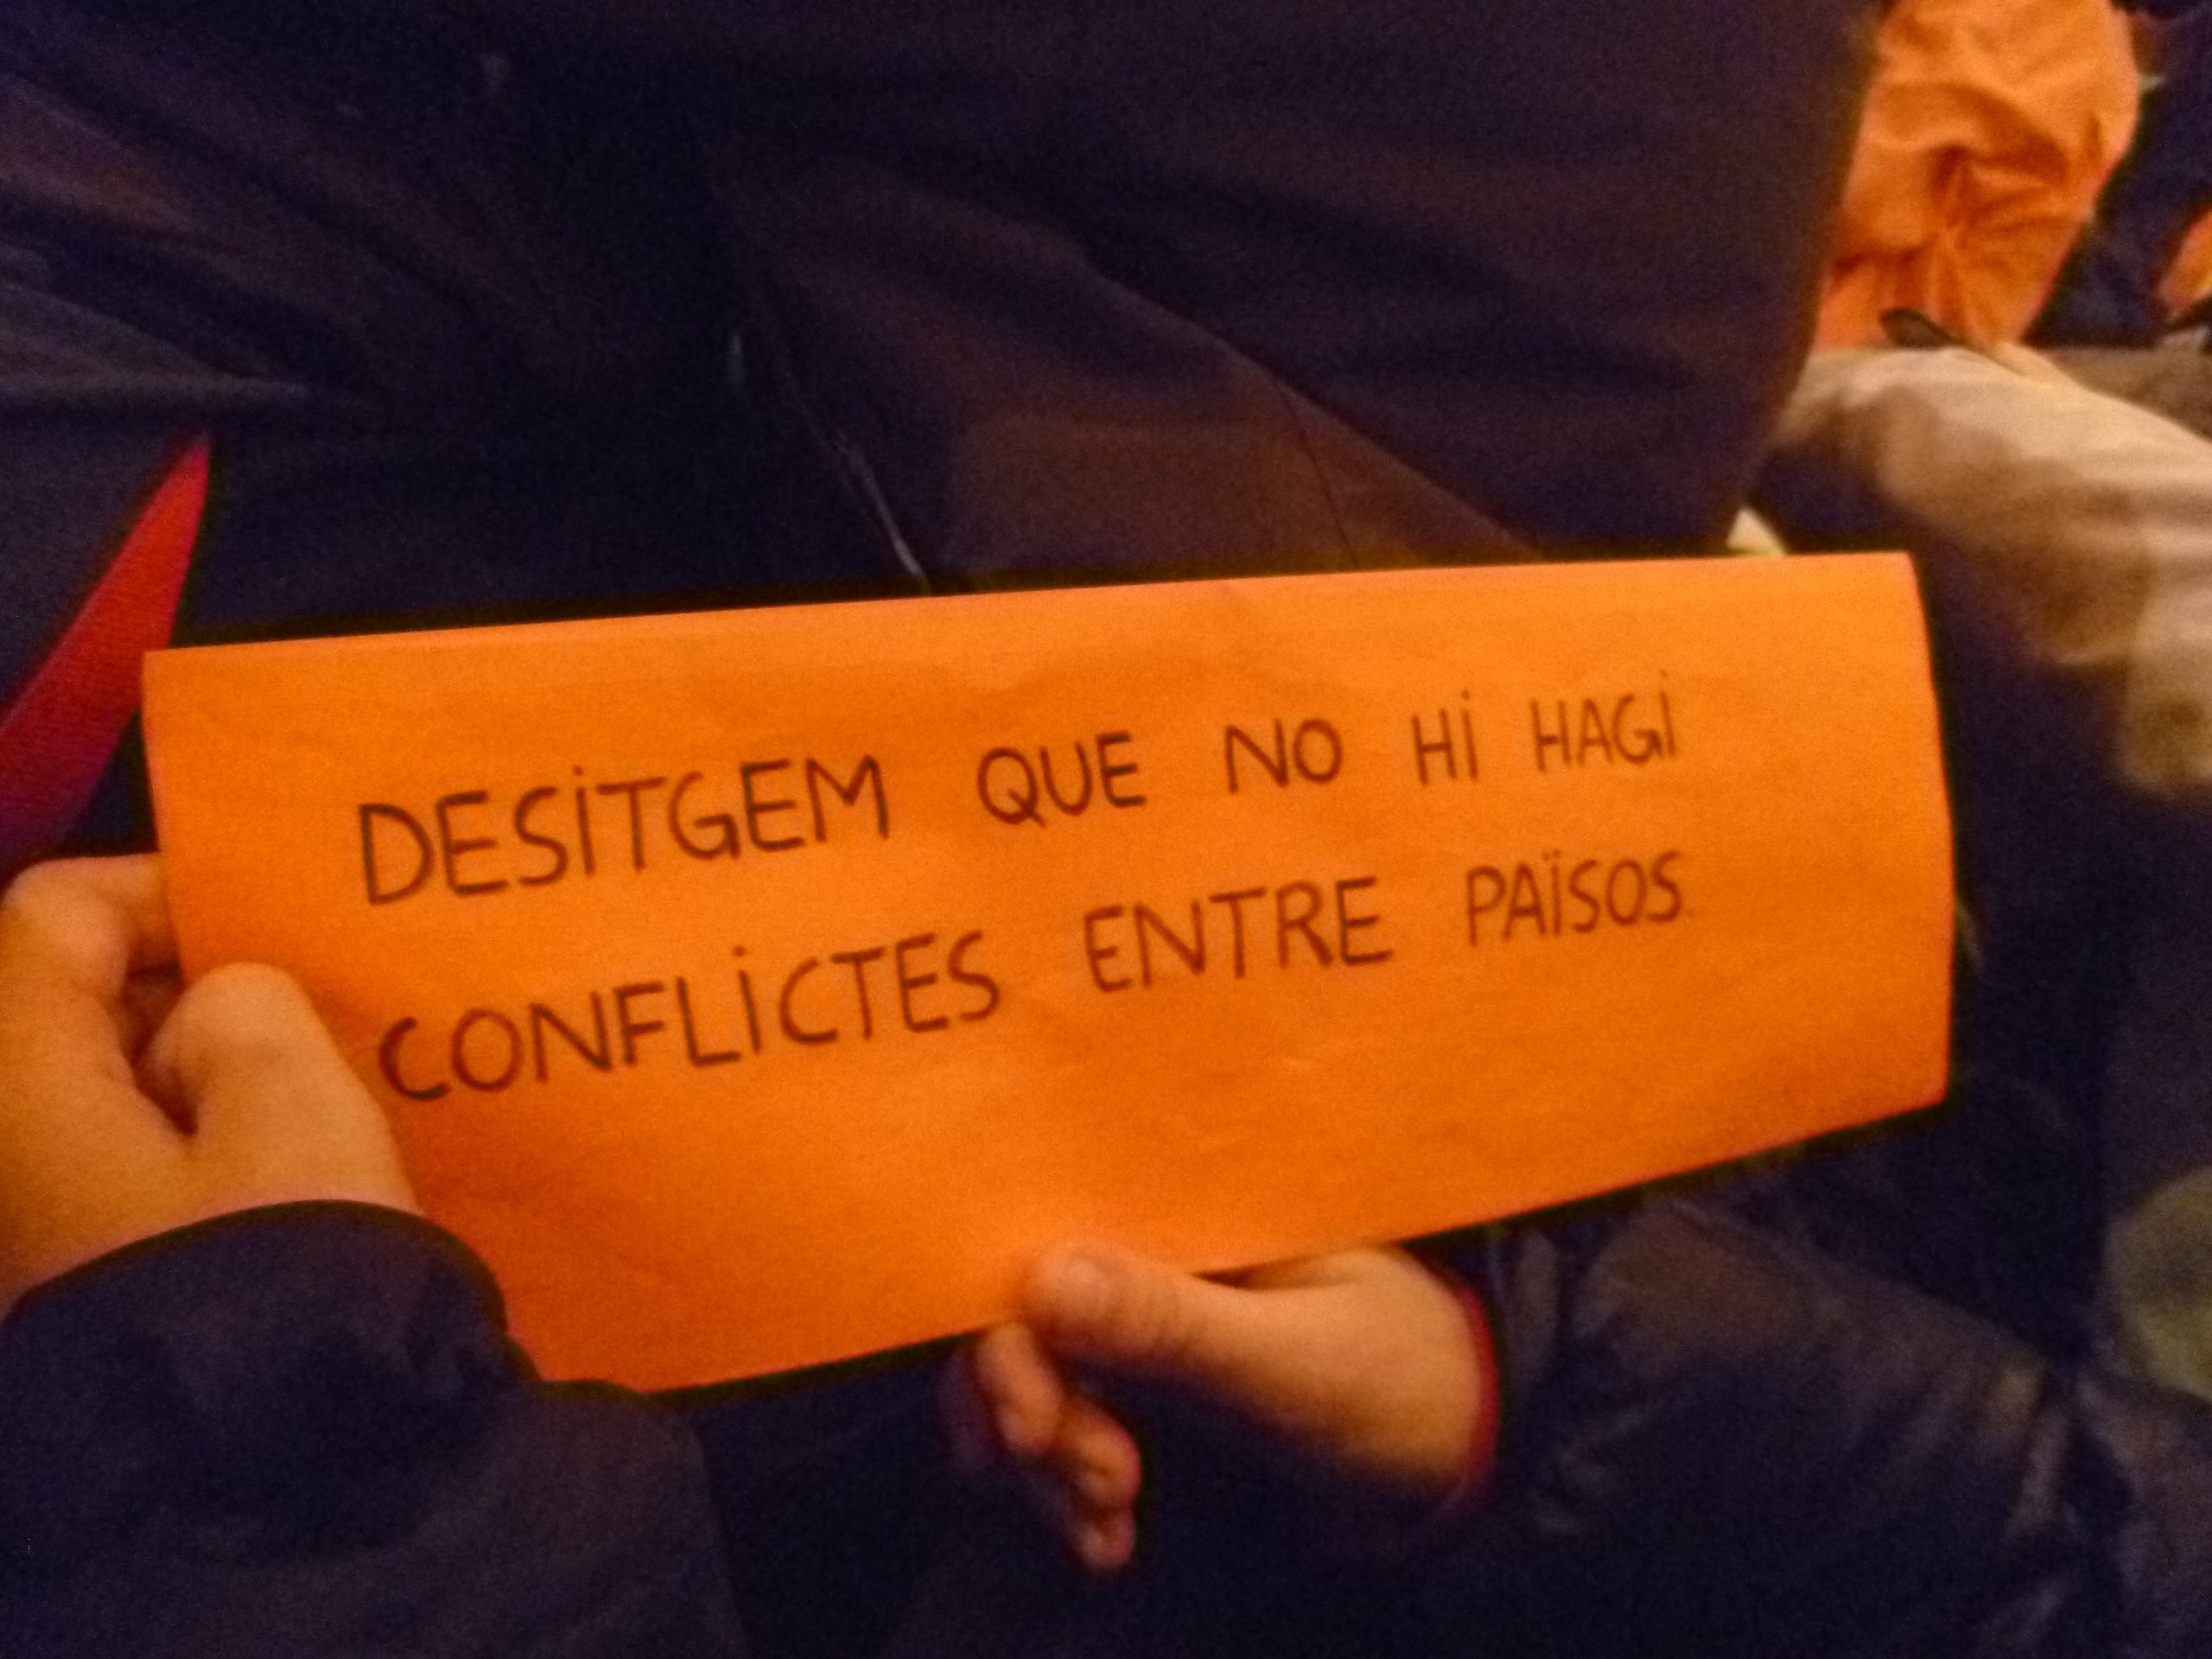 DESITGEM QUE NO HI HAGI
CONFLICTES ENTRE PAÏSOS.